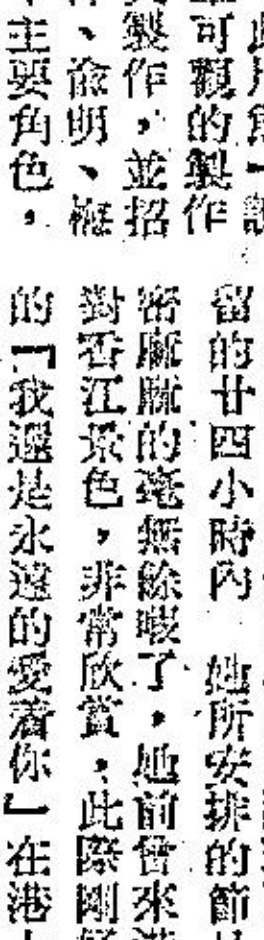 可觀的製作
製作，並招
、俞明、梅
主要角色。
留的廿四小時內　她所安排的節
密麻麻的毫無餘暇了，她前曾來
對香江景色，非常欣賞，此際剛
的「我還是永遠的愛着你」在港